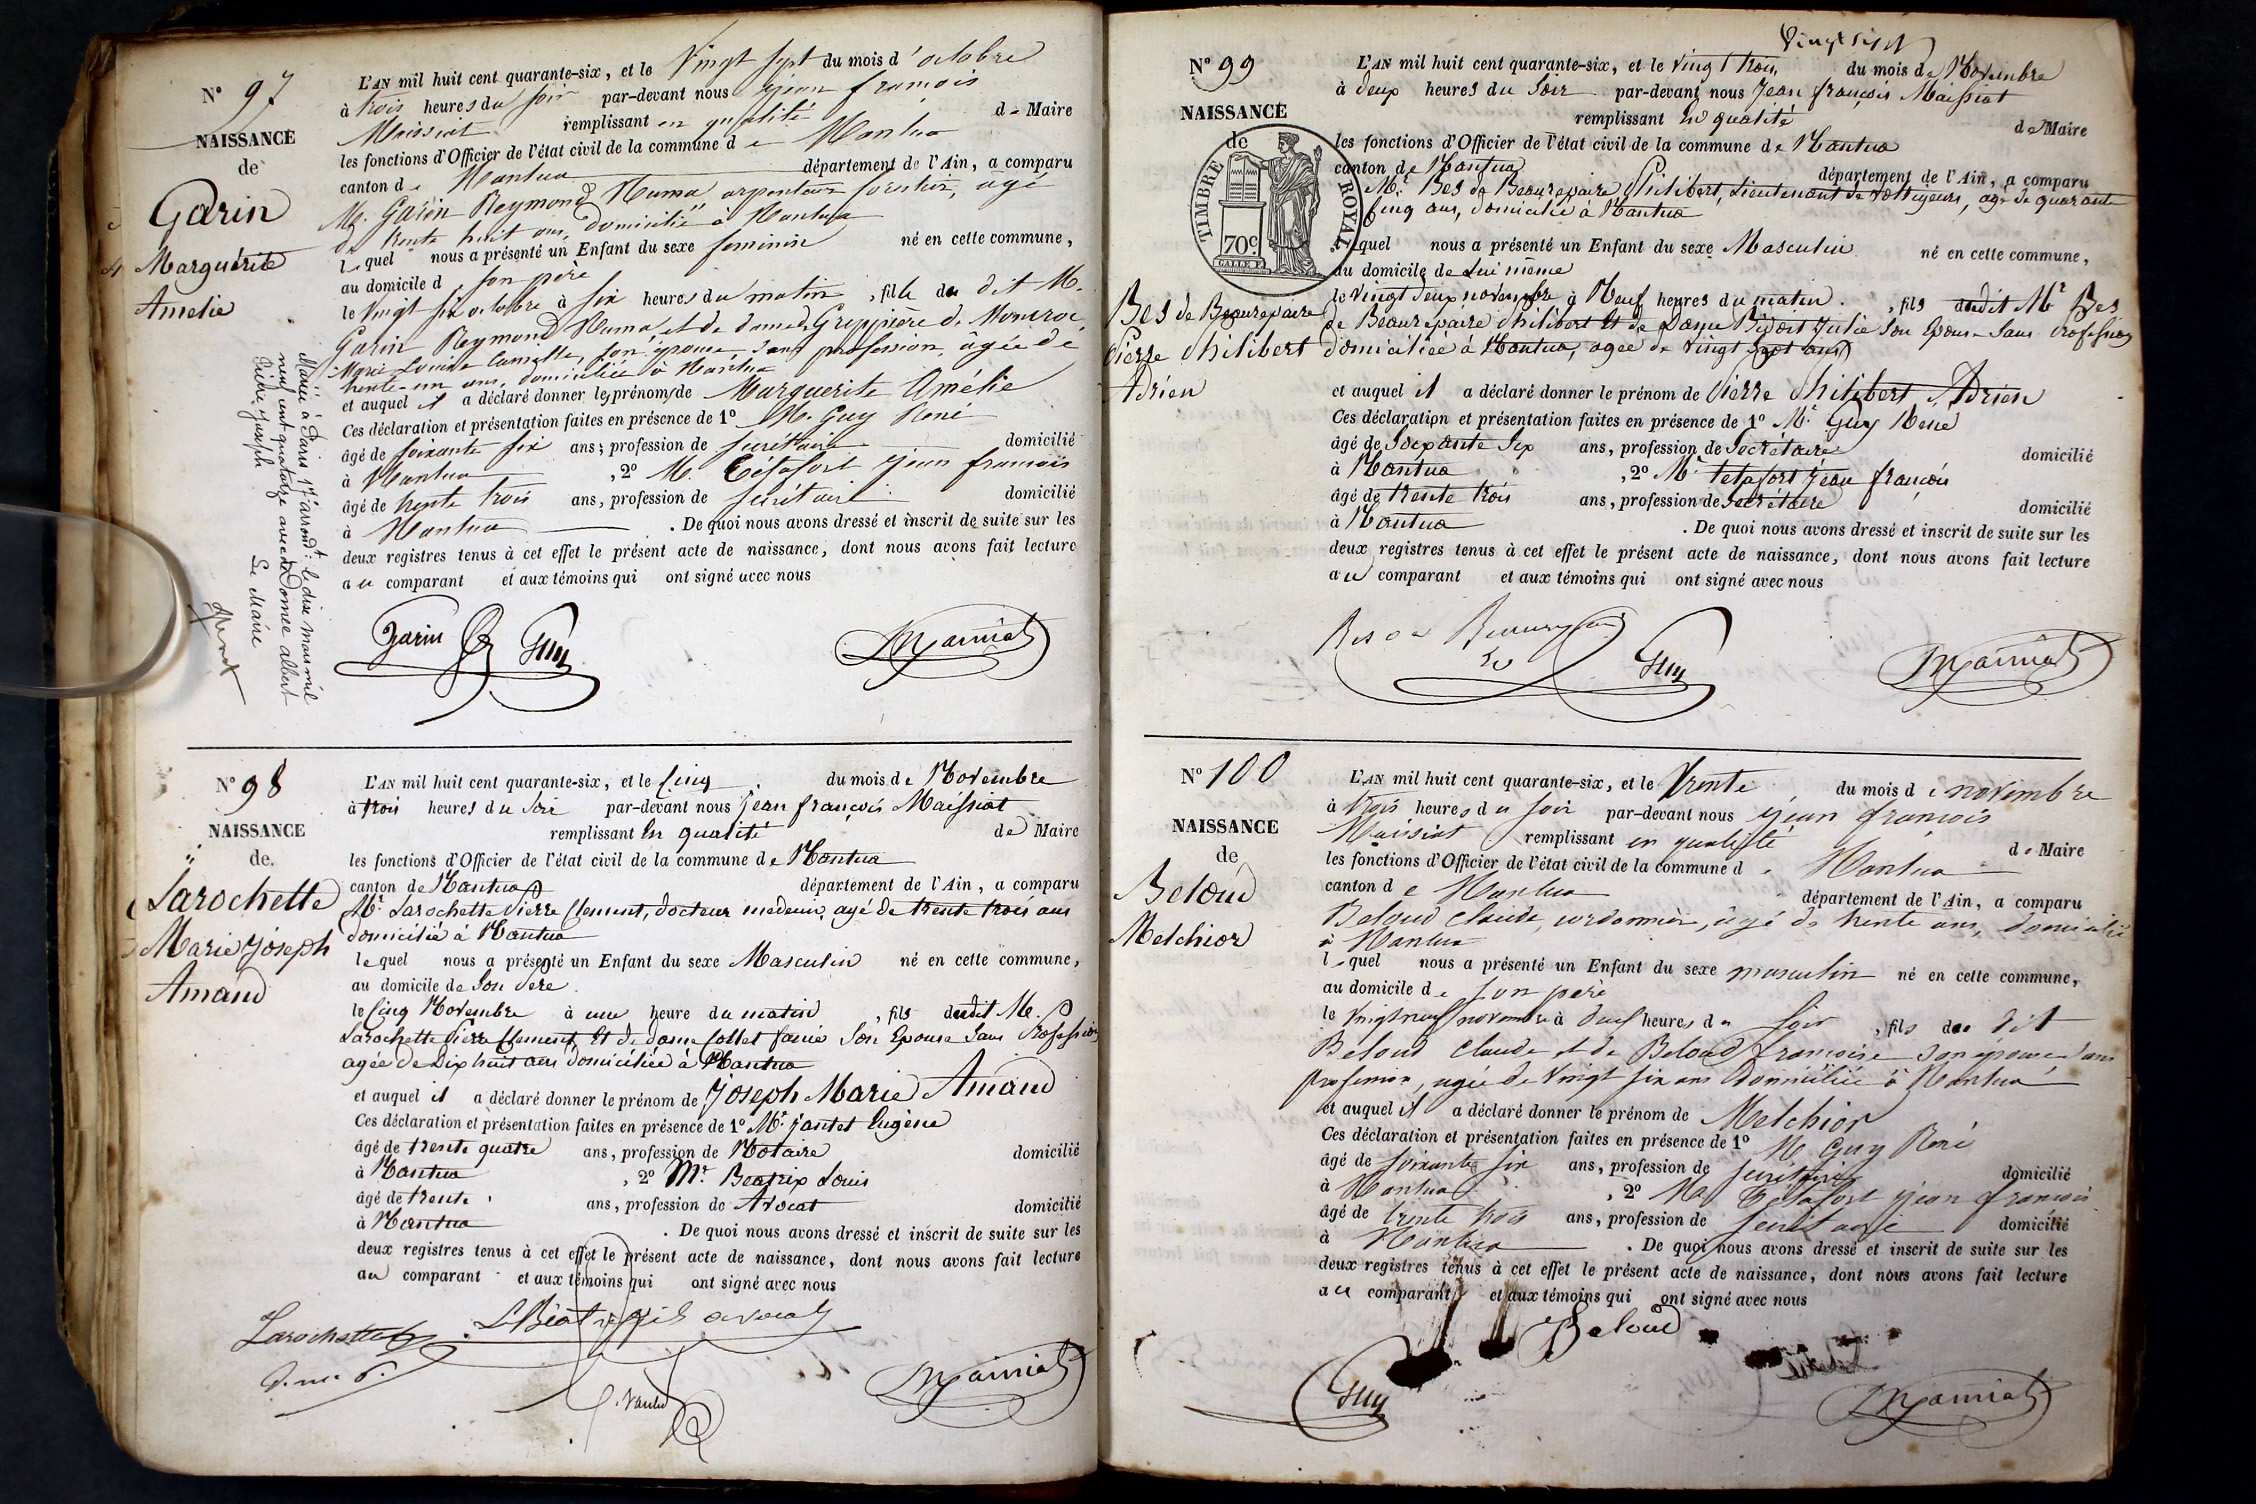 N° 97
NAISSANCE
de
Garin
Marguérite
Amelie
L'AN mil huit cent quarante-six, et le Vingt sept du mois d'octobre
à trois heures du soir par-devant nous jean francois
Maissiat remplissant en qualité de Maire
les fonctions d'Officier de l'état civil de la commune de Nantua
canton de Nantua département de l'Ain, a comparu
M. Garin Reymond Numa arpenteur forestier, âgé
de trente huit ans, domicilié à Nantua
lequel nous a présenté un Enfant du sexe feminin né en cette commune,
au domicile d son père
le vingt six octobre à six heures du matin, fille du dit M.
Garin Reymond Numa et de dame Greppière de Moncroc
Marie Louise Camille, son épouse sans profession, âgée de
trente-un ans, domiciliée à Nantua
et auquel il a déclaré donner les prénoms de Marguerite Amélie
Ces déclaration et présentation faites en présence de 1° M. Guy René
âgé de soixante six ans, profession de secrétaire domicilié
à Nantua, 2° M. Tétafort jean francois
âgé de trente trois ans, profession de secrétaire domicilié
à Nantua. De quoi nous avons dressé et inscrit de suite sur les
deux registres tenus à cet effet le présent acte de naissance, dont nous avons fait lecture
au comparant et aux témoins qui ont signé avec nous
Mariée à Paris 17e arrondt: le dix mars mil
neuf cent quatorze avec Domée albert
Pierre Joseph
Le Maire
Garin Guy Maissiat
N° 98
NAISSANCE
de
Larochette
Marie Joseph
Amand
L'AN mil huit cent quarante-six, et le Cinq du mois de Novembre
à trois heures du soir par-devant nous Jean françois Maissiat
remplissant en qualité de Maire
les fonctions d'Officier de l'état civil de la commune de Nantua
canton de Nantua département de l'Ain, a comparu
Mr. Larochette Pierre Clement, docteur medecin, agé de trente trois ans
domicilié à Nantua
lequel nous a présenté un Enfant du sexe Masculin né en cette commune,
au domicile de Son Père
le Cinq Novembre à une heure du matin, fils dudit Mr.
Larochette Pierre Clement Et de dame Collet fanie Son Epouse Sans Profession
agée de Dix huit ans domiciliée à Nantua
et auquel il a déclaré donner le prénom de Joseph Marie Amand
Ces déclaration et présentation faites en présence de 1° Mr. Jantet Eugène
âgé de trente quatre ans, profession de Notaire domicilié
à Nantua, 2° Mr. Beatrix Louis
âgé de trente ans, profession de Avocat domicilié
à Nantua. De quoi nous avons dressé et inscrit de suite sur les
deux registres tenus à cet effet le présent acte de naissance, dont nous avons fait lecture
au comparant et aux témoins qui ont signé avec nous
Larochette L Béatrix avocat
Jantet Maissiat
vingt sept
N° 99
NAISSANCE
de
TIMBRE ROYAL
70 c.
Bes de Beaurepaire
Pierre Philibert
Adrien
L'AN mil huit cent quarante-six, et le vingt trois du mois de Novembre
à deux heures du Soir par-devant nous Jean françois Maissiat
remplissant En qualité de Maire
les fonctions d'Officier de l'état civil de la commune de Nantua
canton de Nantua département de l'Ain, a comparu
Mr. Bes de Beaurepaire Philibert, Lieutenant de Voltigeurs, agé de quarante
cinq ans, domicilié à Nantua
lequel nous a présenté un Enfant du sexe Masculin né en cette commune,
au domicile de Lui même
le vingt deux novembre à Neuf heures du matin, fils dudit Mr Bes
de Beaurepaire Philibert Et de Dame Bidoit Julie Son Epouse Sans Profession
domiciliée à Nantua, agée de vingt Sept ans
et auquel il a déclaré donner le prénom de Pierre Philibert Adrien
Ces déclaration et présentation faites en présence de 1° Mr. Guy René
âgé de Soixante Six ans, profession de Secrétaire domicilié
à Nantua, 2° Mr Tetafort Jean françois
âgé de trente trois ans, profession de Secrétaire domicilié
à Nantua. De quoi nous avons dressé et inscrit de suite sur les
deux registres tenus à cet effet le présent acte de naissance, dont nous avons fait lecture
au comparant et aux témoins qui ont signé avec nous
Bes de Beaurepaire Guy Maissiat
N° 100
NAISSANCE
de
Beloud
Melchior
L'AN mil huit cent quarante-six, et le Trente du mois de novembre
à trois heures du soir par-devant nous jean francois
Maissiat remplissant en qualité de Maire
les fonctions d'Officier de l'état civil de la commune de Nantua
canton de Nantua département de l'Ain, a comparu
Beloud Claude, cordonnier, âgé de trente ans, domicilié
à Nantua
lequel nous a présenté un Enfant du sexe masculin né en cette commune,
au domicile de son père
le vingt neuf novembre à deux heures du soir, fils du dit
Beloud Claude et de Beloud francoise son épouse sans
profession, agée de vingt six ans domiciliée à Nantua
et auquel il a déclaré donner le prénom de Melchior
Ces déclaration et présentation faites en présence de 1° M. Guy René
âgé de soixante six ans, profession de secrétaire domicilié
à Nantua, 2° M. Tétafort jean francois
âgé de trente trois ans, profession de secrétaire domicilié
à Nantua. De quoi nous avons dressé et inscrit de suite sur les
deux registres tenus à cet effet le présent acte de naissance, dont nous avons fait lecture
au comparant et aux témoins qui ont signé avec nous
Beloud
Guy Maissiat